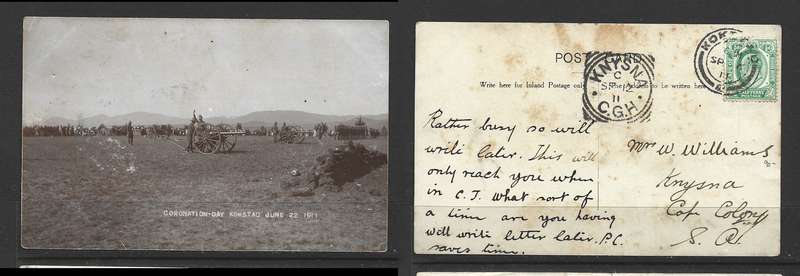 CORONATION-DAY KOKSTAD JUNE 22 1911
POST CARD
Write here for Inland Postage only
to be written here
KNYSNA
C
11
C.G.H.
KOKSTAD
SP
11
HALFPENNY
Rather busy so will
write later. This will
only reach you when
in C.T. What sort of
a time are you having
will write letter later. P.C.
saves time.
Mrs W. Williams
Knysna
Cape Colony
S. A.